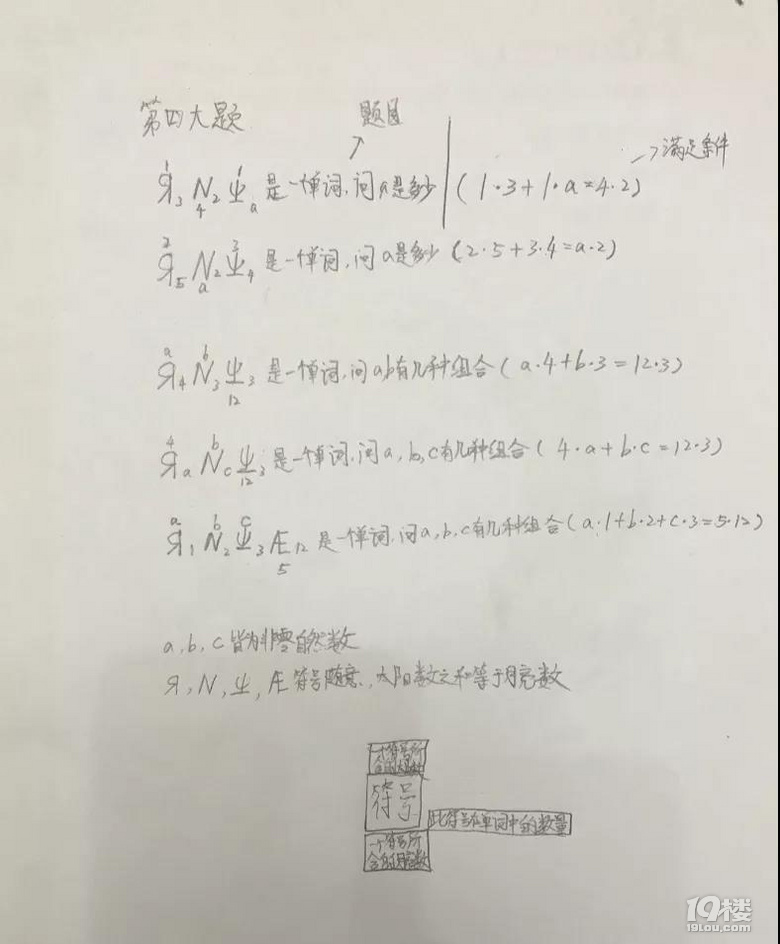 第四大题 题目
Я₃¹ N₂₄ Ψₐ¹ 是一个单词,问a是多少 (1·3+1·a=4·2) →满足条件
Я₅² N₂ₐ Ψ₄³ 是一个单词,问a是多少 (2·5+3·4=a·2)
Я₄ᵃ N₃ᵇ Ψ₃₁₂ 是一个单词,问ab有几种组合 (a·4+b·3=12·3)
Яₐ⁴ N꜀ᵇ Ψ₃₁₂ 是一个单词,问a,b,c有几种组合 (4·a+b·c=12·3)
Я₁ᵃ N₂ᵇ Ψ₃ᶜ Æ₁₂ ₅ 是一个单词,问a,b,c有几种组合 (a·1+b·2+c·3=5·12)
a,b,c皆为非零自然数
Я,N,Ψ,Æ符号随意,太阳数之和等于月亮数
一个符号所
含的太阳数
符号
此符号在单词中的数量
一个符号所
含的月亮数
19楼
19lou.com